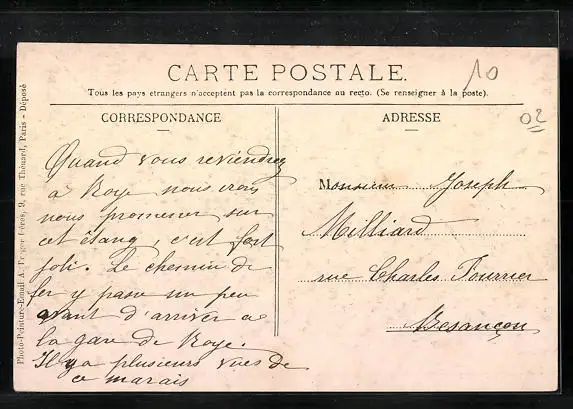 10
02
CARTE POSTALE.
Tous les pays étrangers n'acceptent pas la correspondance au recto. (Se renseigner à la poste).
CORRESPONDANCE
Quand vous reviendrez
à Roye nous irons
nous promener sur
cet étang, c'est fort
joli. Le chemin de
fer y passe un peu
avant d'arriver à
la gare de Roye.
Il y a plusieurs vues de
ce marais
ADRESSE
Monsieur Joseph
Milliard
rue Charles Fourrier
Besançon
Photo-Peinture-Email A. Frères, 9, rue Thénard, Paris - Déposé